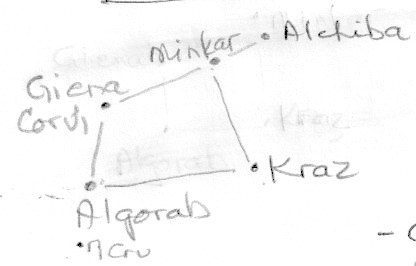 Alchiba
Minkar
Giena
Corvi
Kraz
Algorab
η Crv